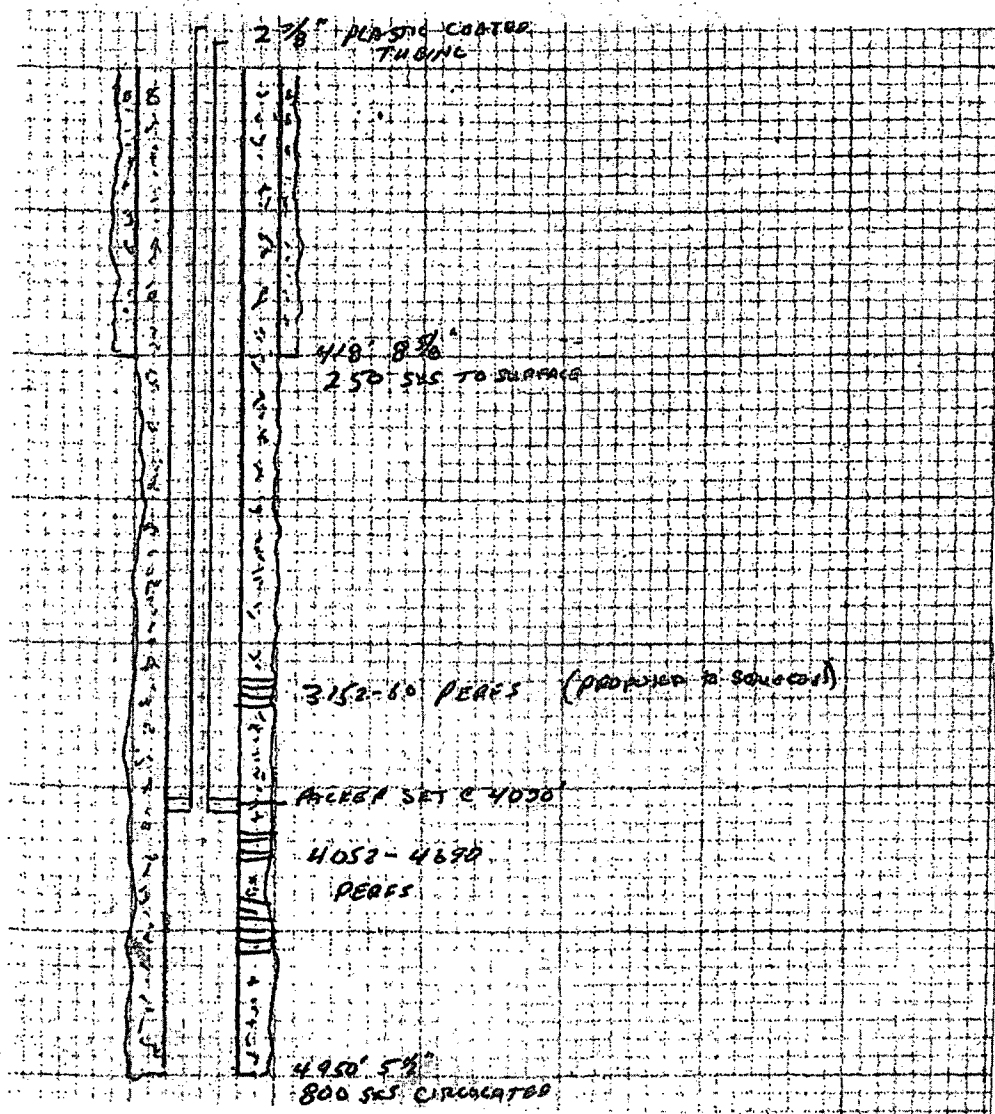 2 7/8" PLASTIC COATED
TUBING
418' 8 5/8"
250 SXS TO SURFACE
3152-60' PERFS (PROPOSED to SQUEEZE)
PACKER SET @ 4030'
4052-4690
PERFS
4950' 5 1/2"
800 SXS CIRCULATED